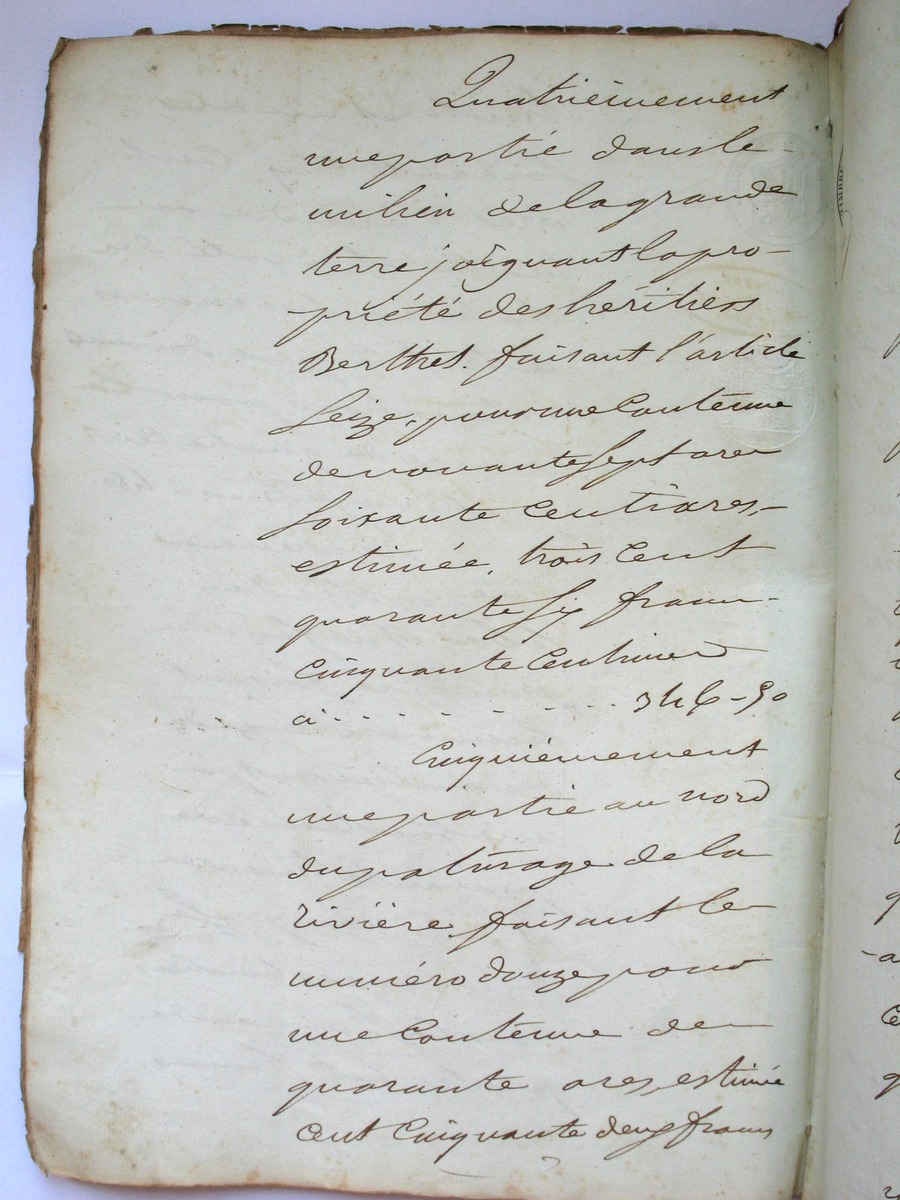 Quatrièmement
une partie dans le
milieu de la grande
terre joignant la pro-
priété des héritiers
Berthet. faisant l'article
Seize, pour une Contenue
de novante Sept ares
Soixante Centiares,-
estimée, trois Cent
quarante Six francs
Cinquante Centimes
à . . . . . . . . 346-50
Cinquièmement
une partie au nord
du paturage de la
rivière, faisant le
numéro douze pour
une Contenue de
quarante ares, estimée
Cent Cinquante deux francs